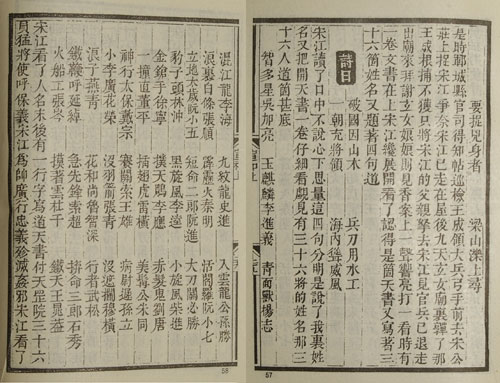 要捉兇身者　梁山濼上尋
是時鄆城縣官司得知帖巡檢王成領大兵弓手前去宋公
莊上捉宋江爭奈宋江已走在屋後九天玄女廟裏躱了那
王成根捕不獲只將宋江的父親拏去宋江見官兵已退走
出廟來拜謝玄女娘娘則見香案上一聲響亮打一看時有
一卷文書在上宋江纔展開看了認得是箇天書又寫着三
十六箇姓名又題着四句道
詩曰
破國因山木　兵刀用水工
一朝充將領　海內聳威風
宋江讀了口中不說心下思量這四句分明是說了我裏姓
名又把開天書一卷仔細看覷見有三十六將的姓名那三
十六人道箇甚底
智多星吳加亮　玉麒麟李進義　青面獸楊志
57
混江龍李海　九紋龍史進　入雲龍公孫勝
浪裏白條張順　霹靂火秦明　活閻羅阮小七
立地太歲阮小五　短命二郎阮進　大刀關必勝
豹子頭林沖　黑旋風李逵　小旋風柴進
金鎗手徐寧　撲天鵰李應　赤髮鬼劉唐
一撞直董平　插翅虎雷橫　美髯公朱同
神行太保戴宗　賽關索王雄　病尉遲孫立
小李廣花榮　沒羽箭張青　沒遮攔穆橫
浪子燕青　花和尚魯智深　行者武松
鐵鞭呼延綽　急先鋒索超　拚命三郎石秀
火船工張岑　摸着雲杜千　鐵天王晁蓋
宋江看了人名末後有一行字寫道天書付天罡院三十六
員猛將使呼保義宋江爲帥廣行忠義殄滅姦邪宋江看了
58